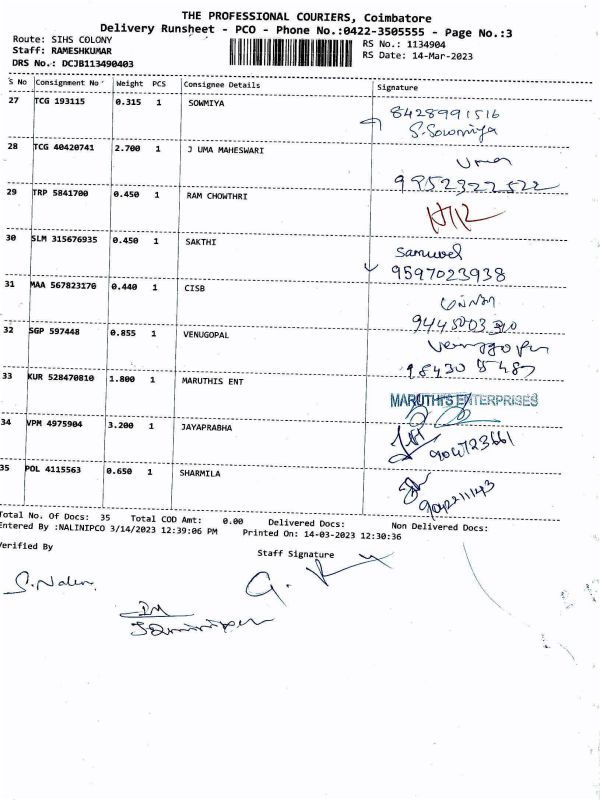 THE PROFESSIONAL COURIERS, Coimbatore
Delivery Runsheet - PCO - Phone No.:0422-3505555 - Page No.:3
Route: SIHS COLONY
RS No.: 1134904
Staff: RAMESHKUMAR
RS Date: 14-Mar-2023
DRS No.: DCJB113490403
S No Consignment No Weight PCS Consignee Details Signature
27 TCG 193115 0.315 1 SOWMIYA
8428991516
S.Sowmiya
28 TCG 40420741 2.700 1 J UMA MAHESWARI
Uma
9952322522
29 TRP 5841700 0.450 1 RAM CHOWTHRI
30 SLM 315676935 0.450 1 SAKTHI
Samuvel
9597023938
31 MAA 567823170 0.440 1 CISB
32 SGP 597448 0.855 1 VENUGOPAL
33 KUR 528470810 1.800 1 MARUTHIS ENT
MARUTHI'S ENTERPRISES
34 VPM 4975904 3.200 1 JAYAPRABHA
35 POL 4115563 0.650 1 SHARMILA
Total No. Of Docs: 35 Total COD Amt: 0.00 Delivered Docs: Non Delivered Docs:
Entered By :NALINIPCO 3/14/2023 12:39:06 PM Printed On: 14-03-2023 12:30:36
Verified By
Staff Signature
S.Nalini